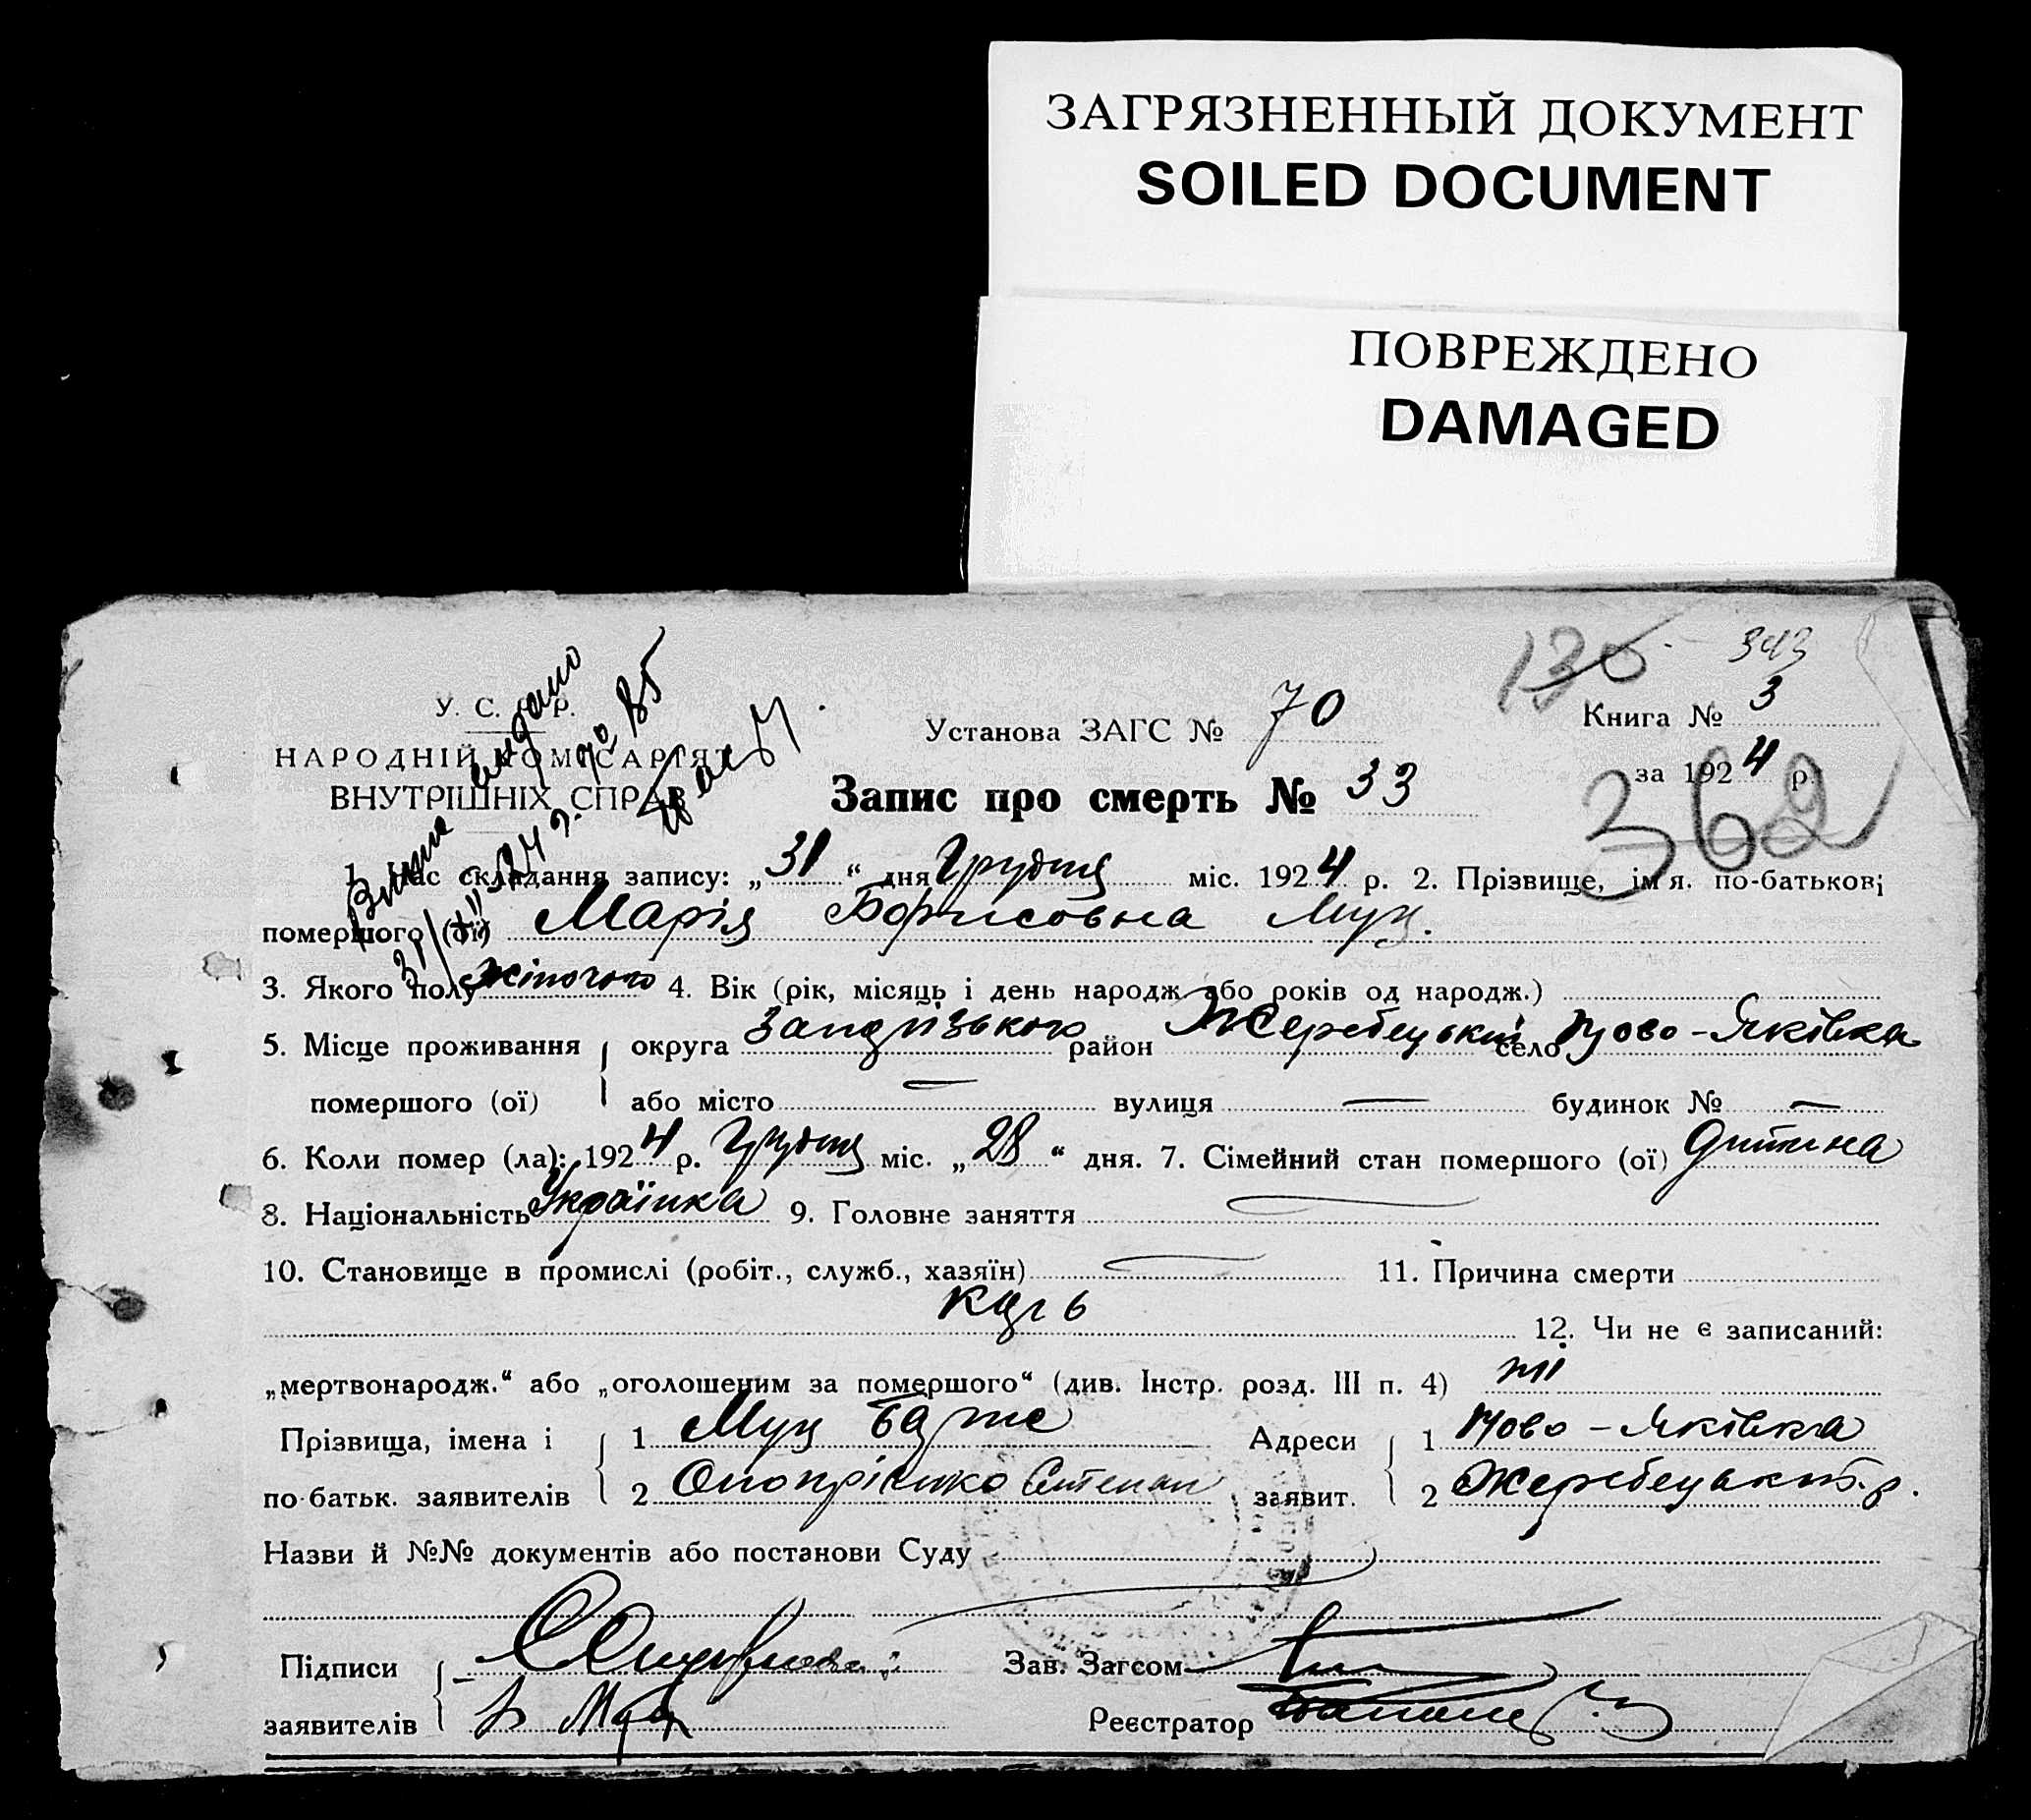 ЗАГРЯЗНЕННЫЙ ДОКУМЕНТ
SOILED DOCUMENT
ПОВРЕЖДЕНО
DAMAGED
136 343
У. С. Р.
Установа ЗАГС № 70
Книга № 3
НАРОДНІЙ КОМІСАРІЯТ
ВНУТРІШНІХ СПРАВ
за 1924 р.
362
Запис про смерть № 33
1. Час складання запису: „31“ дня Грудня міс. 1924 р. 2. Прізвище, ім'я. по-батькові
помершого (ої) Марія Борисовна Муц.
3. Якого полу жіночого 4. Вік (рік, місяць і день народж. або років од народж.)
5. Місце проживання округа Запорізького район Жеребецький село Ново-Яківка
помершого (ої) або місто — вулиця — будинок № —
6. Коли помер (ла): 1924 р. Грудня міс. „28“ дня. 7. Сімейний стан помершого (ої) дитина
8. Національність Українка 9. Головне заняття —
10. Становище в промислі (робіт., служб., хазяїн) — 11. Причина смерти
кір
12. Чи не є записаний:
„мертвонародж.“ або „оголошеним за помершого“ (див. Інстр. розд. III п. 4) ні
Прізвища, імена і 1 Муц Адреси 1 Ново-Яківка
по-батьк. заявителів 2 Онопрієнко Степан заявит. 2 Жеребецьк. р.
Назви й №№ документів або постанови Суду
Підписи
Зав. Загсом
заявителів Муц
Реєстратор